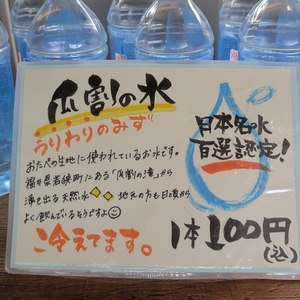 瓜割の水
うりわりのみず
おたべの生地に使われているお水です。
福井県若狭町にある「瓜割の滝」から
湧き出る天然水 地元の方も日頃から
よく飲んでいるそうですよ
冷えてます。
日本名水
百選認定!
1本100円
(込)